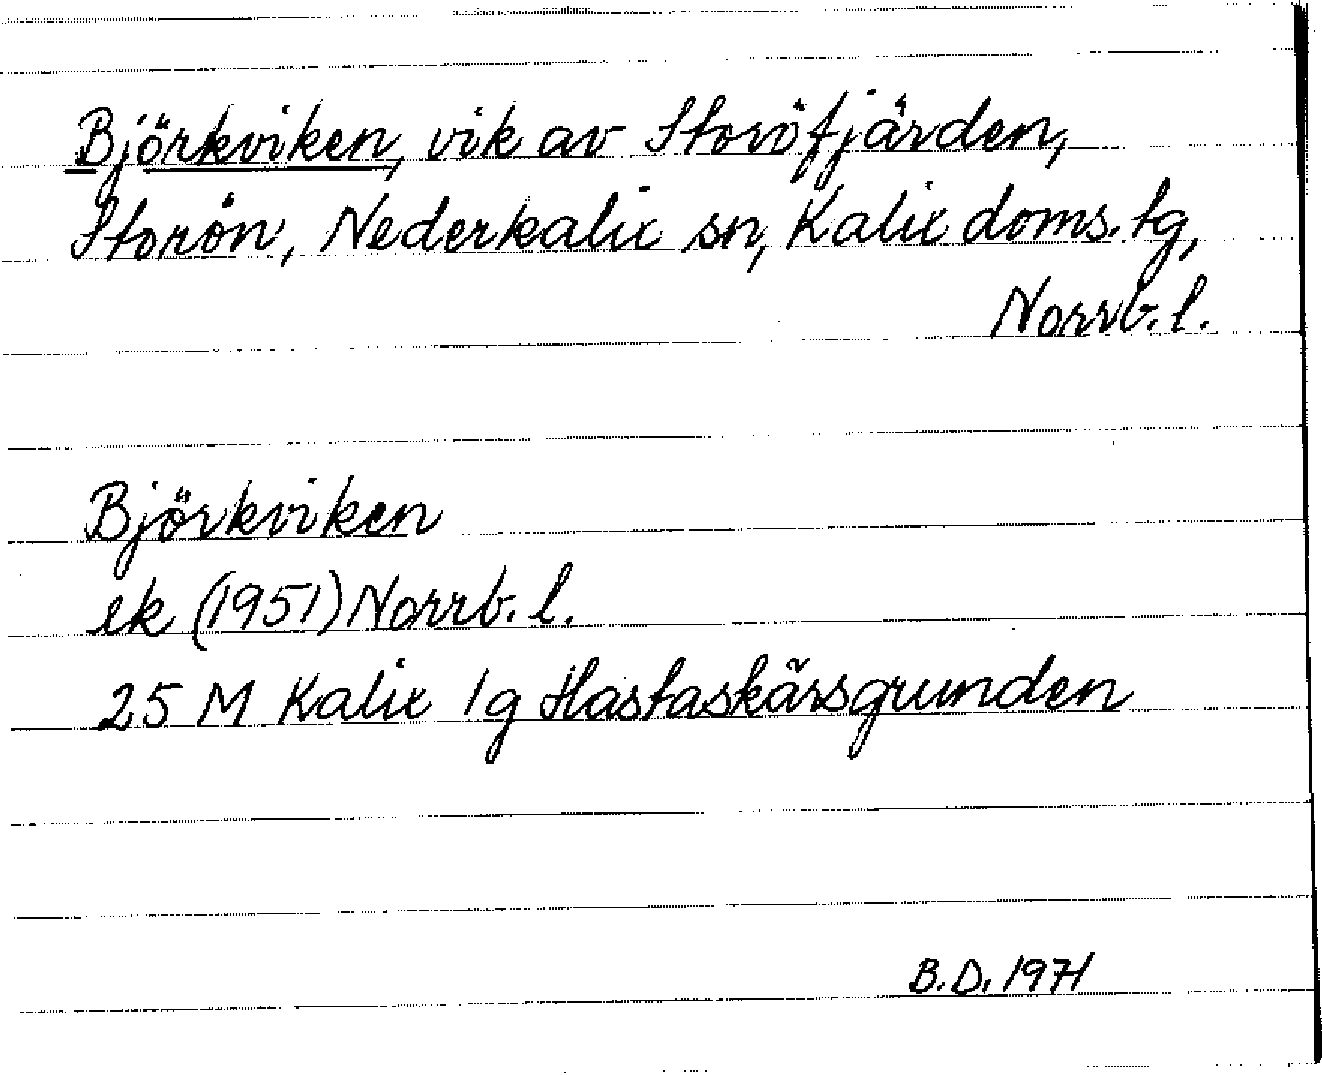 Björkviken, vik av Storöfjärden,
Storön, Nederkalix sn, Kalix doms. tg,
Norrb. l.
Björkviken
ek (1951) Norrb. l.
25 M Kalix 1g Hastaskärsgrunden
B.D. 1971